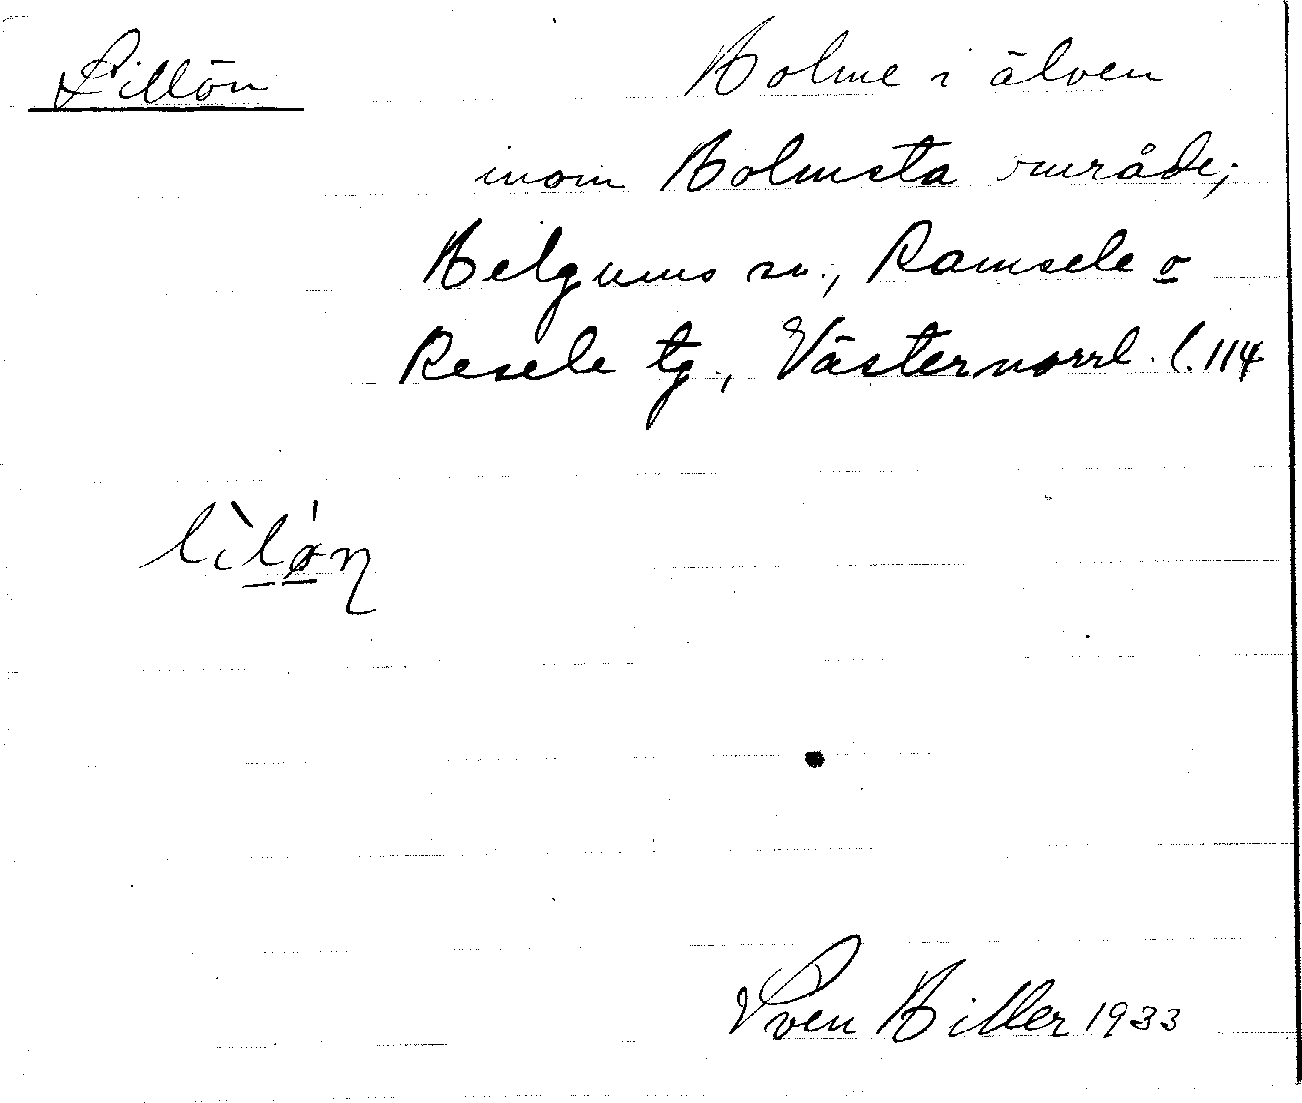 Lillön
Holme i älven
inom Holmsta område;
Helgums sn., Ramsele o
Resele tg., Västernorrl. l. 114
lìlø̱ṇ
Sven Hiller 1933